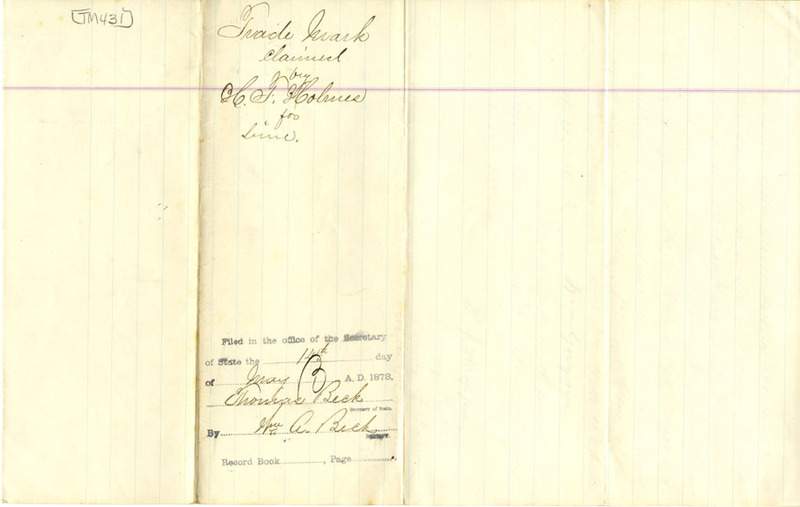 [TM431]
Trade Mark
claimed
by
H. T. Holmes
for
Lime.
Filed in the office of the Secretary
of State the 14th day
of May A. D. 1878.
Thomas Beck
Secretary of State.
By Wm A. Beck
Deputy.
Record Book , Page .